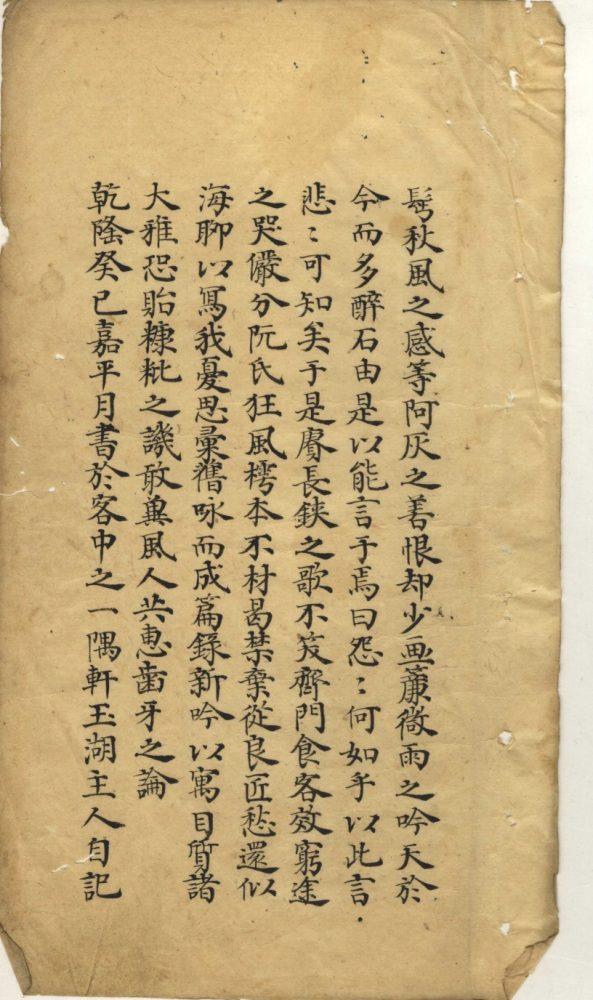 髩秋風之感等阿灰之善恨却少畫簾微雨之吟天於
今而多醉石由是以能言于焉曰怨〻何如乎以此言
悲〻可知矣于是賡長鋏之歌不笑齊門食客效窮途
之哭儼分阮氏狂風樗本不材曷禁棄從良匠愁還似
海聊以寫我憂思彙舊咏而成篇錄新吟以寓目質諸
大雅恐貽糠粃之譏敢兾風人共惠齒牙之論
乾隆癸巳嘉平月書於客中之一隅軒玉湖主人自記